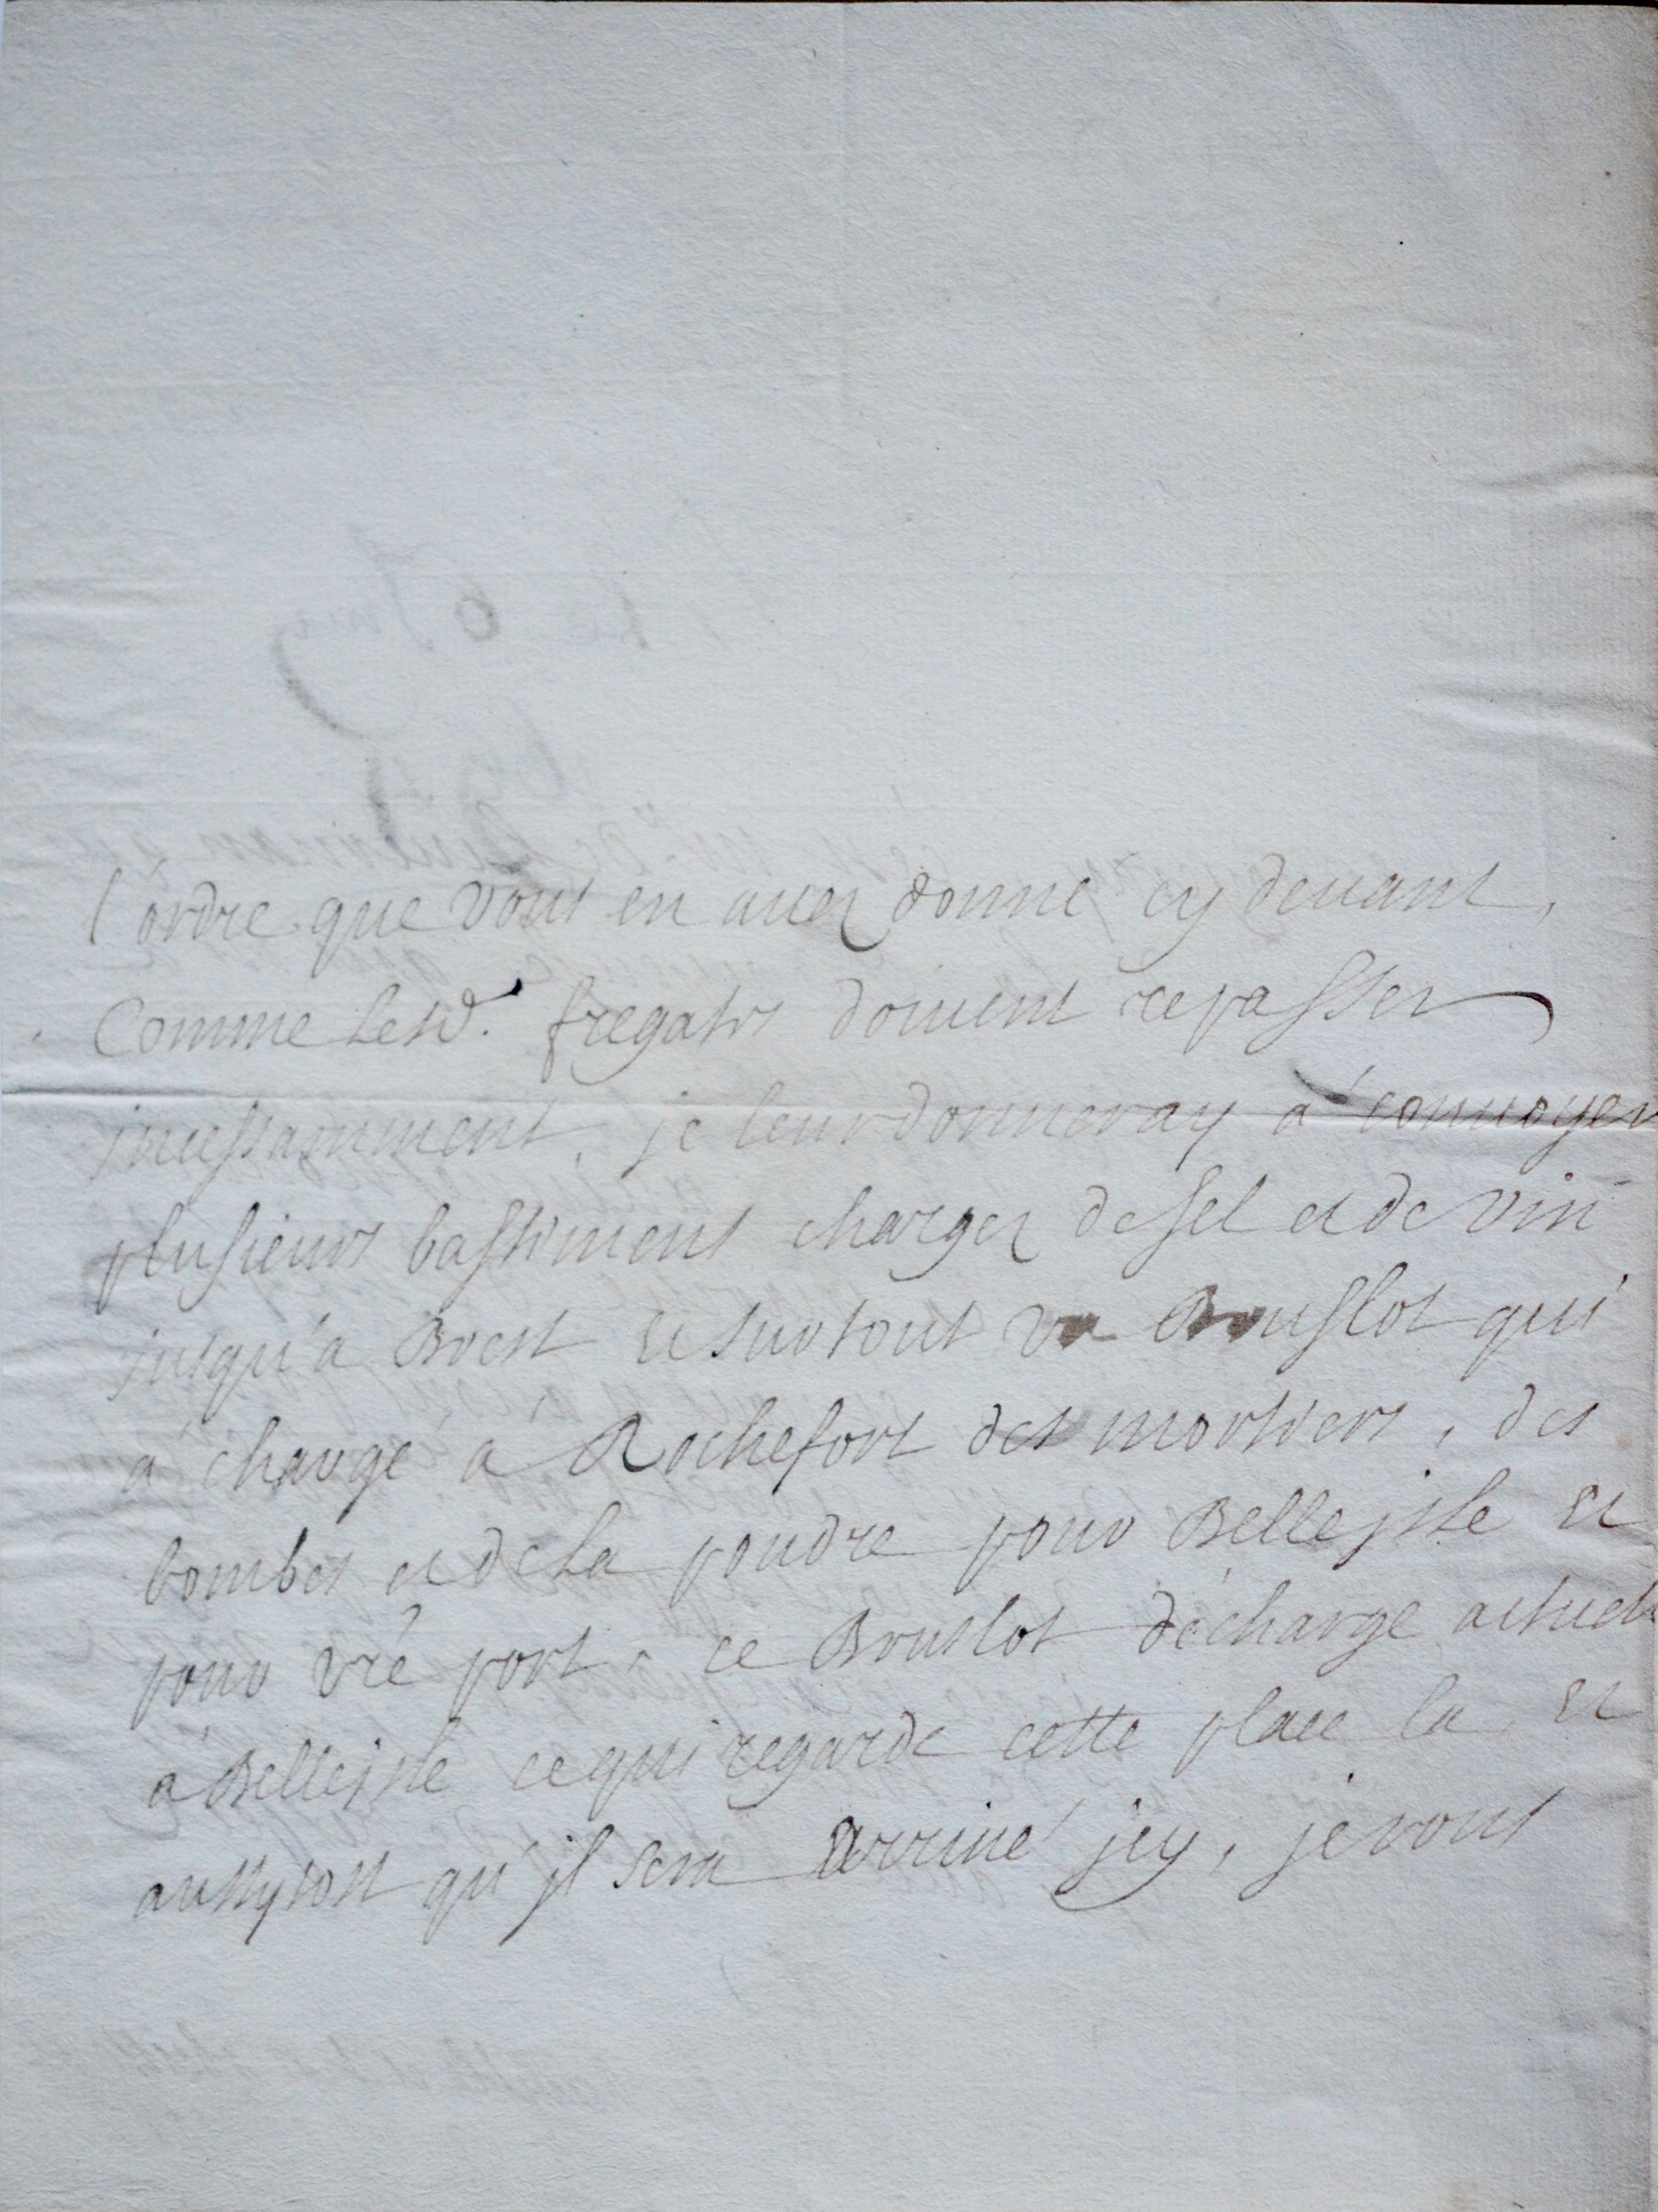 l'ordre que vous en auez donné cy deuant,
Comme lesd. fregates doiuent repasser
jncessamment, je leur donneray a conuoyer
plusieurs bastimens chargez de sel et de vin
jusqu'a Brest et surtout vn Bruslot qui
a chargé a Rochefort des mortiers, des
bombes et de la poudre pour Bellejsle et
pour vre port. ce Bruslot décharge actuell
a Bellejsle ce qui regarde cette place la, et
aussytost qu'jl sera arriué jcy, je vous